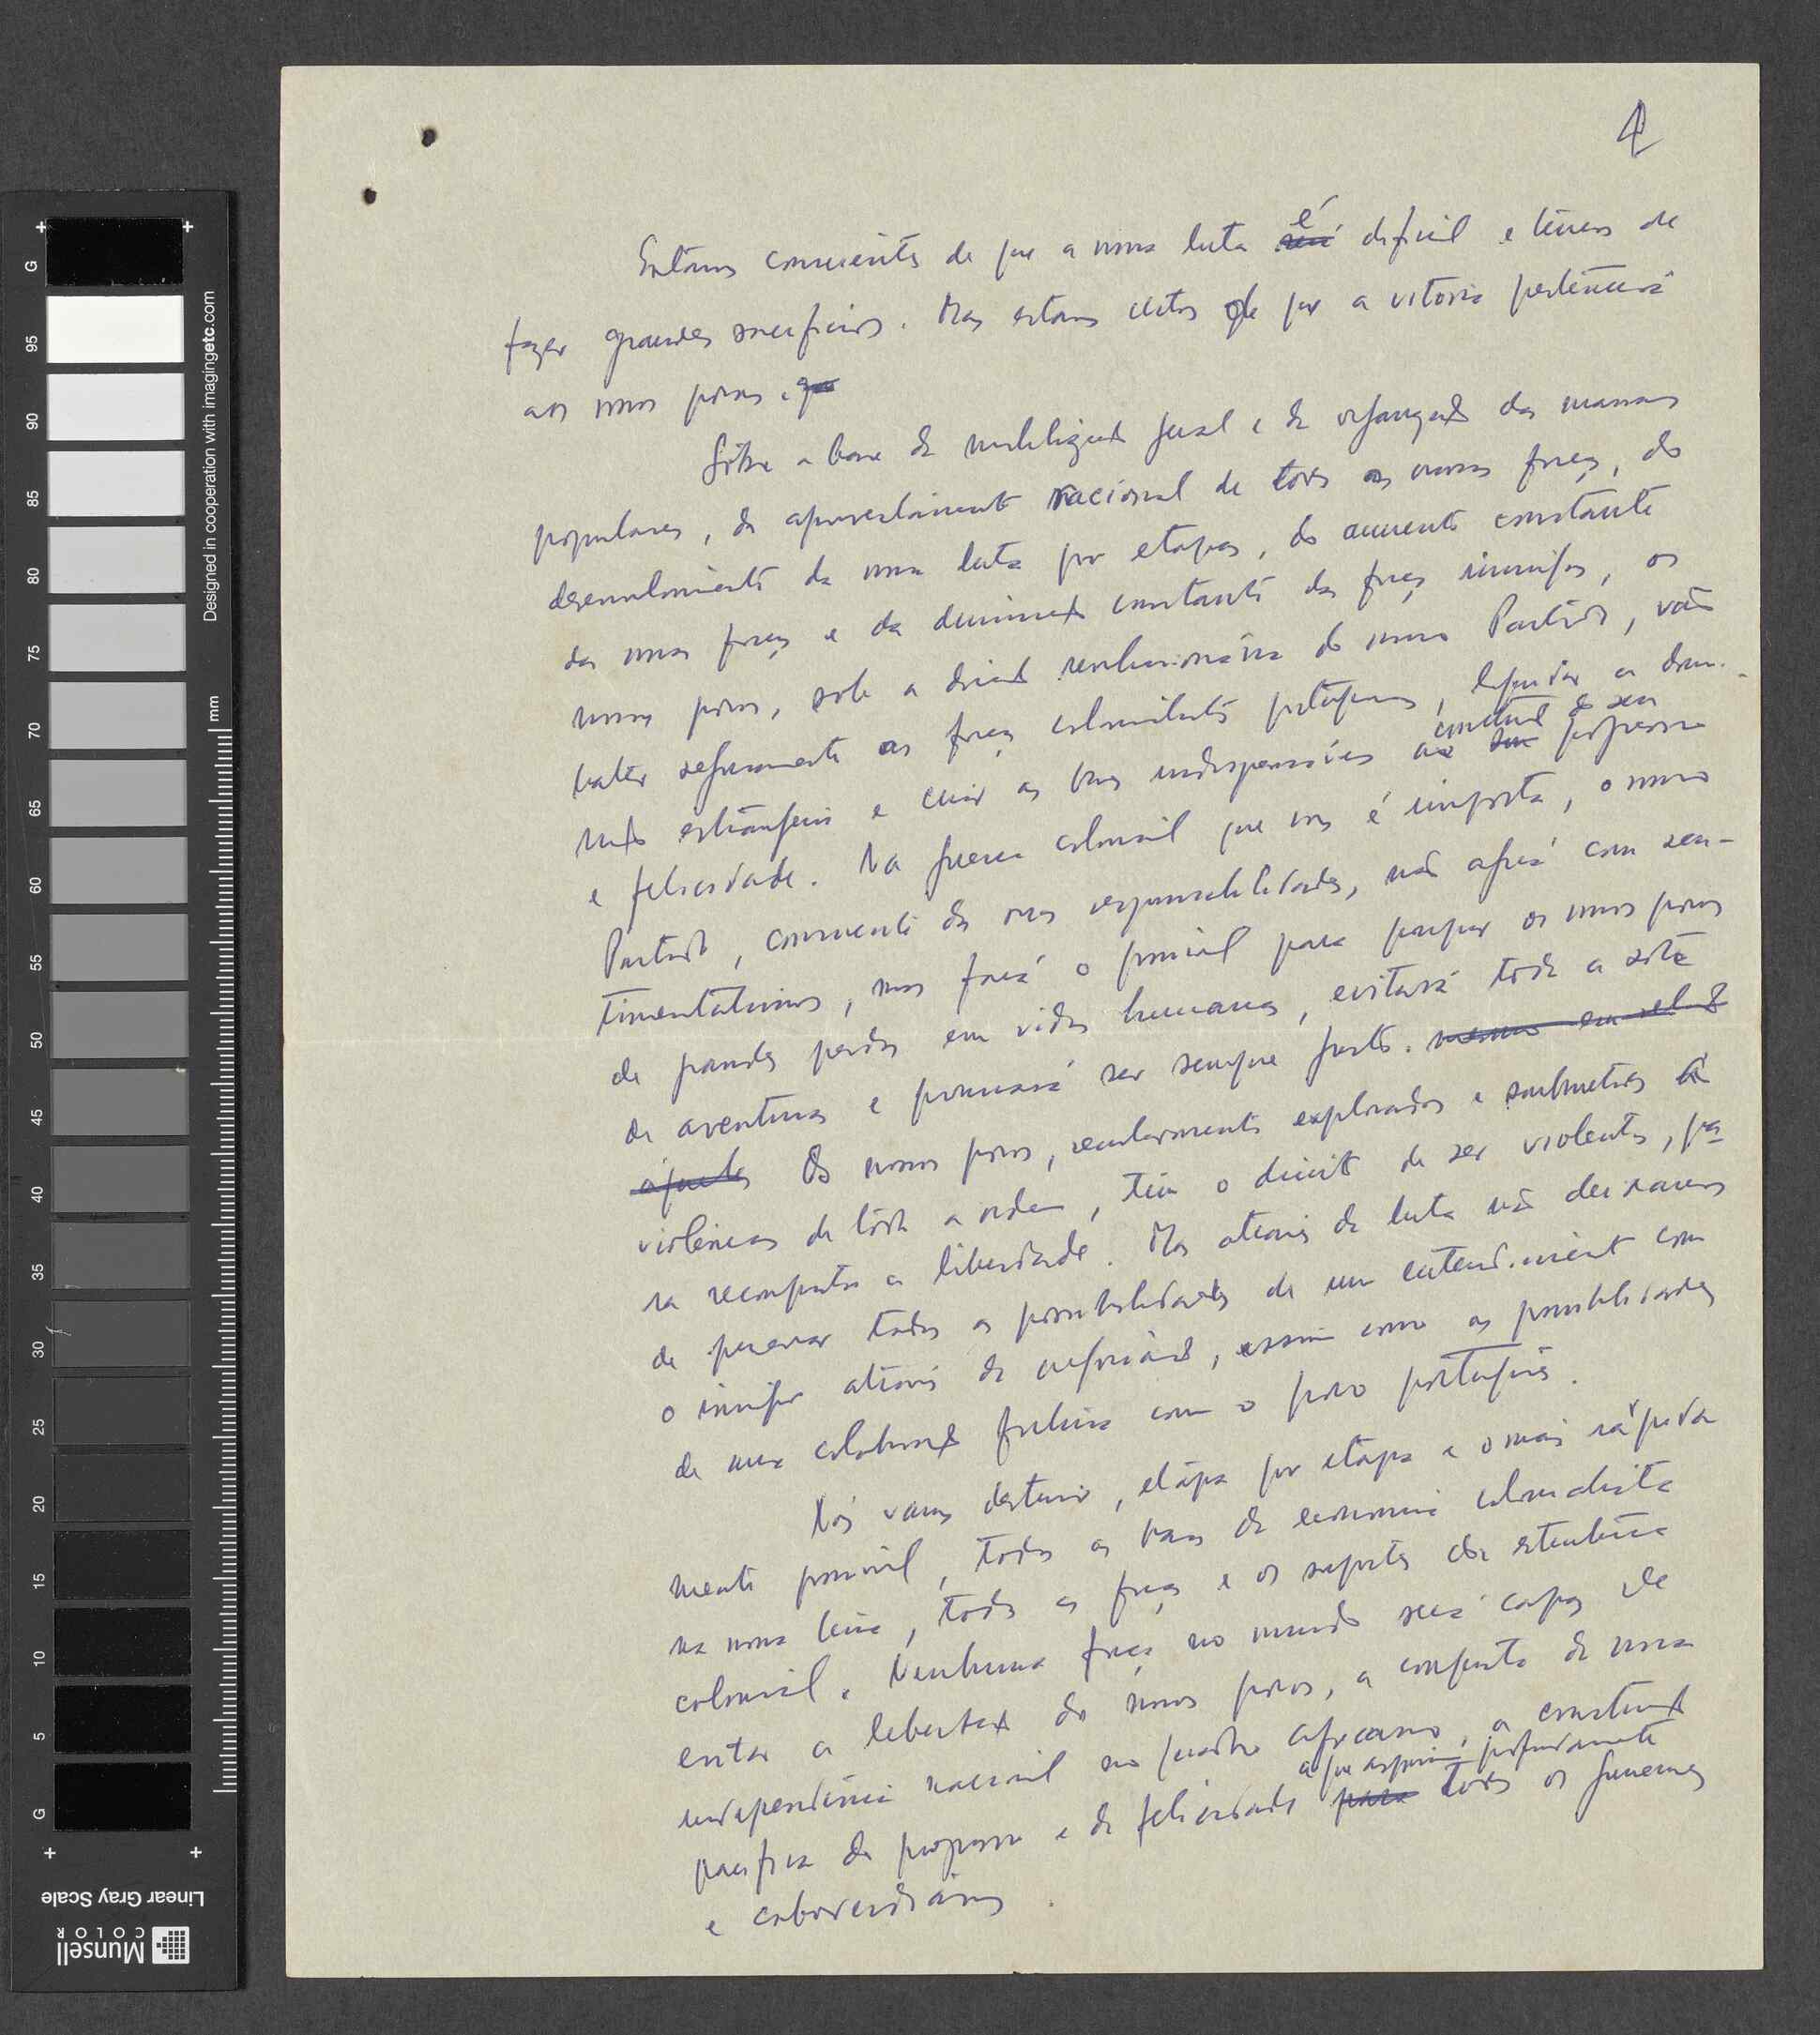 4
Estamos conscientes de que a nossa luta será é difícil e temos de
fazer grandes sacrifícios. Mas estamos certos de que a vitória pertencerá
aos nossos povos. que
Sôbre a base da mobilização geral e da organização das massas
populares, do aproveitamento racional de todas as nossas forças, do
desenvolvimento da nossa luta por etapas, do aumento constante
das nossas forças e da diminuição constante das forças inimigas, os
nossos povos, sob a direção revolucionária do nosso Partido, vão
bater seguramente as forças colonialistas portuguesas, liquidar a domi-
nação estrangeira e criar as bases indispensáveis ao seu construção do seu progresso
e felicidade. Na guerra colonial que nos é imposta, o nosso
Partido, consciente das suas responsabilidades, não agirá com sen-
timentalismos, mas fará o possível para poupar os nossos povos
de grandes perdas em vidas humanas, evitará toda a sorte
de aventuras e procurará ser sempre justo. mesmo em relação
àqueles Os nossos povos, secularmente explorados e submetidos a
violências de tôda a ordem, têm o direito de ser violentos, pa
ra reconquistar a liberdade. Mas através da luta não deixaremos
de preservar todas as possibilidades de um entendimento com
o inimigo através de negociação, assim como as possibilidades
de uma colaboração futura com o povo português.
Nós vamos destruir, etapa por etapa e o mais rápida
mente possível, todas as bases da economia colonialista
na nossa terra, todas as forças e os suportes da estrutura
colonial. Nenhuma força no mundo será capaz de
evitar a libertação dos nossos povos, a conquista da nossa
independência nacional no quadro africano, a construção
pacífica do progresso e da felicidade para a que aspiram profundamente todos os guineenses
e caboverdianos.
G
95
90
85
80
75
70
65
60
55
50
45
40
35
30
25
20
15
10
5
G
mm
Designed in cooperation with imagingetc.com
Linear Gray Scale
Munsell
COLOR